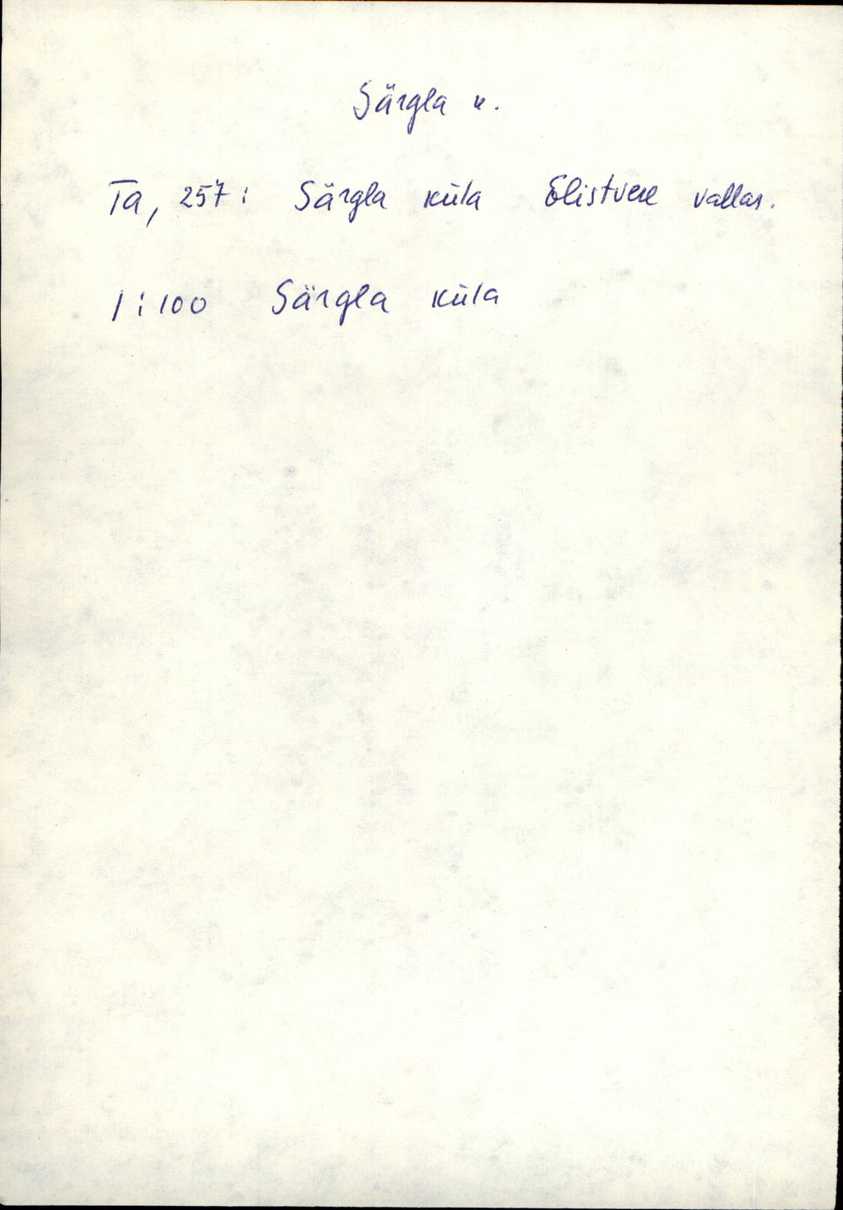 Särgla k.
Ta, 257: Särgla küla Elistvere vallas.
1:100 Särgla küla